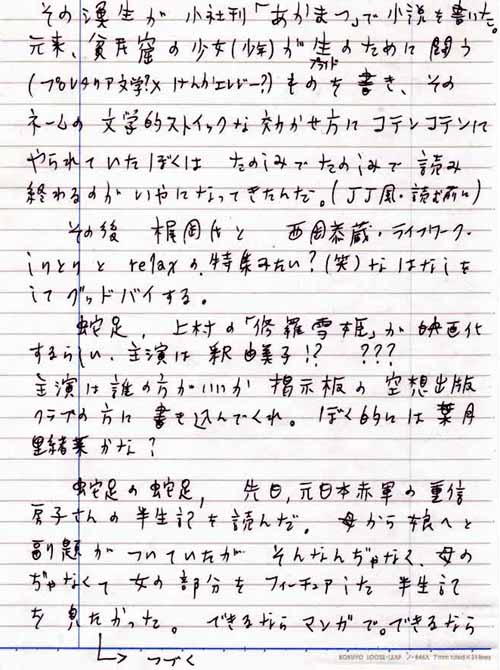 その漢生が小社刊「あかまつ」で小説を書いた。
元来、貧民窟の少女(少年)が生のために闘う
プライド
(プロレタリア文学?×けんかエレジー?)ものを書き、その
ネームの文学的ストイックな効かせ方にコテンコテンに
やられていたぼくは たのしみでたのしみで 読み
終わるのがいやになってきたんだ。(JJ風・読む前に)
その後 梶岡氏と 西岡恭蔵・ライフワーク・
in とか relaxの特集みたい?(笑)なはなしを
してグッドバイする。
蛇足, 上村の「修羅雪姫」が映画化
するらしい、主演は釈由美子!? ???
主演は誰の方がいいか 掲示板の空想出版
クラブの方に書き込んでくれ。ぼく的には葉月
里緒菜かな?
蛇足の蛇足, 先日,元日本赤軍の重信
房子さんの半生記を読んだ。母から娘へと
副題がついていたが そんなんぢゃなく、母の
ぢゃなくて女の部分をフィーチュアした半生記
を見たかった。できるならマンガで。できるなら
↳ つづく
KOKUYO LOOSE-LEAF ノ-846A 7mm ruled×31 lines